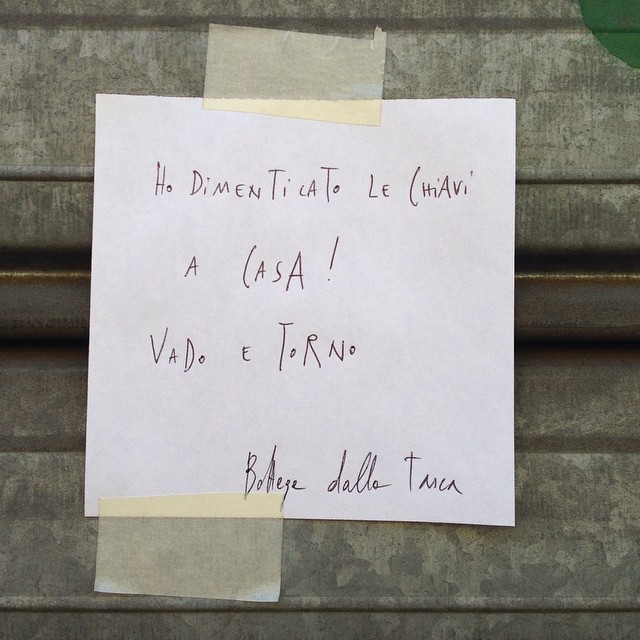 HO DIMENTICATO LE CHIAVI
A CASA!
VADO E TORNO
Bottega della